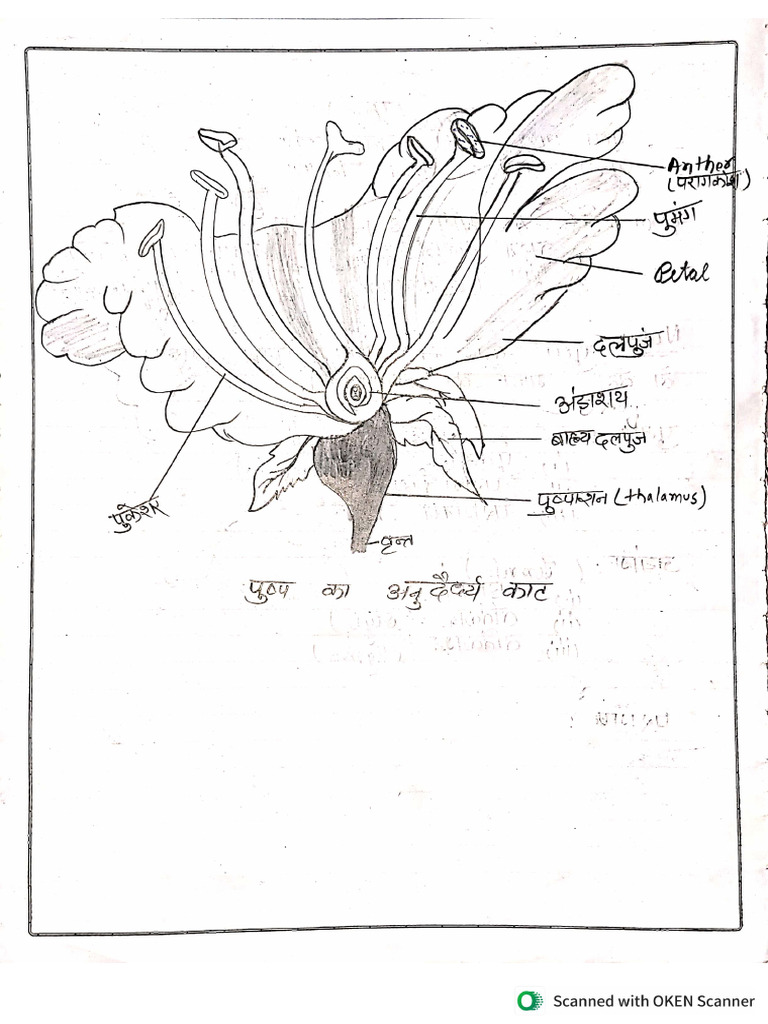 Anther
(परागकोश)
पुमंग
Petal
दलपुंज
अंडाशय
बाह्य दलपुंज
पुष्पाशन (thalamus)
पुंकेशर
वृन्त
पुष्प का अनुदैर्ध्य काट
Scanned with OKEN Scanner